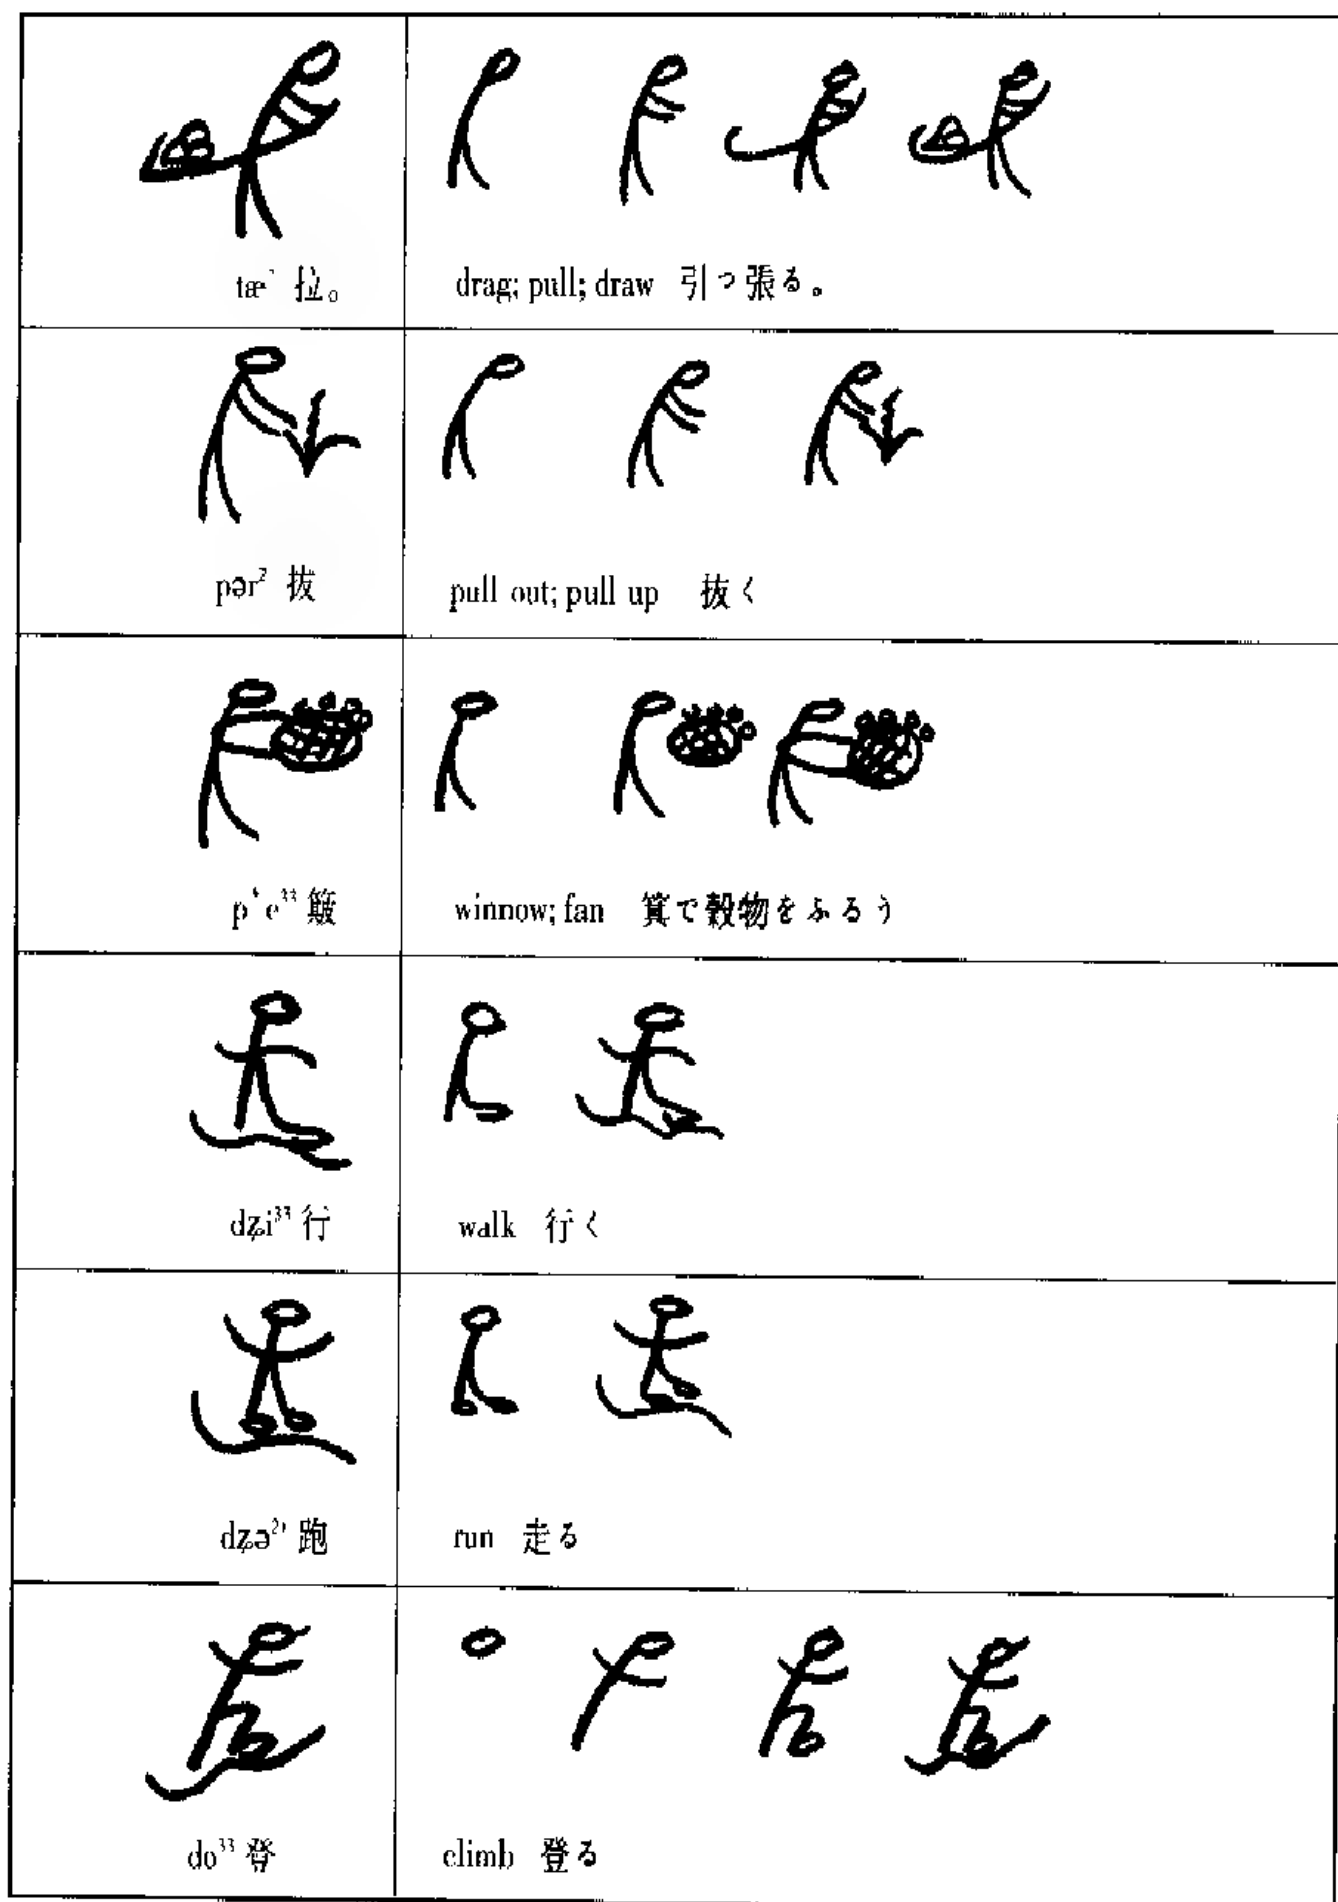 拉。 drag; pull; draw 引っ張る。
pər² 抜 pull out; pull up 抜く
p‘e³³ 簸 winnow; fan 箕で穀物をふるう
dʐi³³ 行 walk 行く
dʐə²¹ 跑 run 走る
do³³ 登 climb 登る